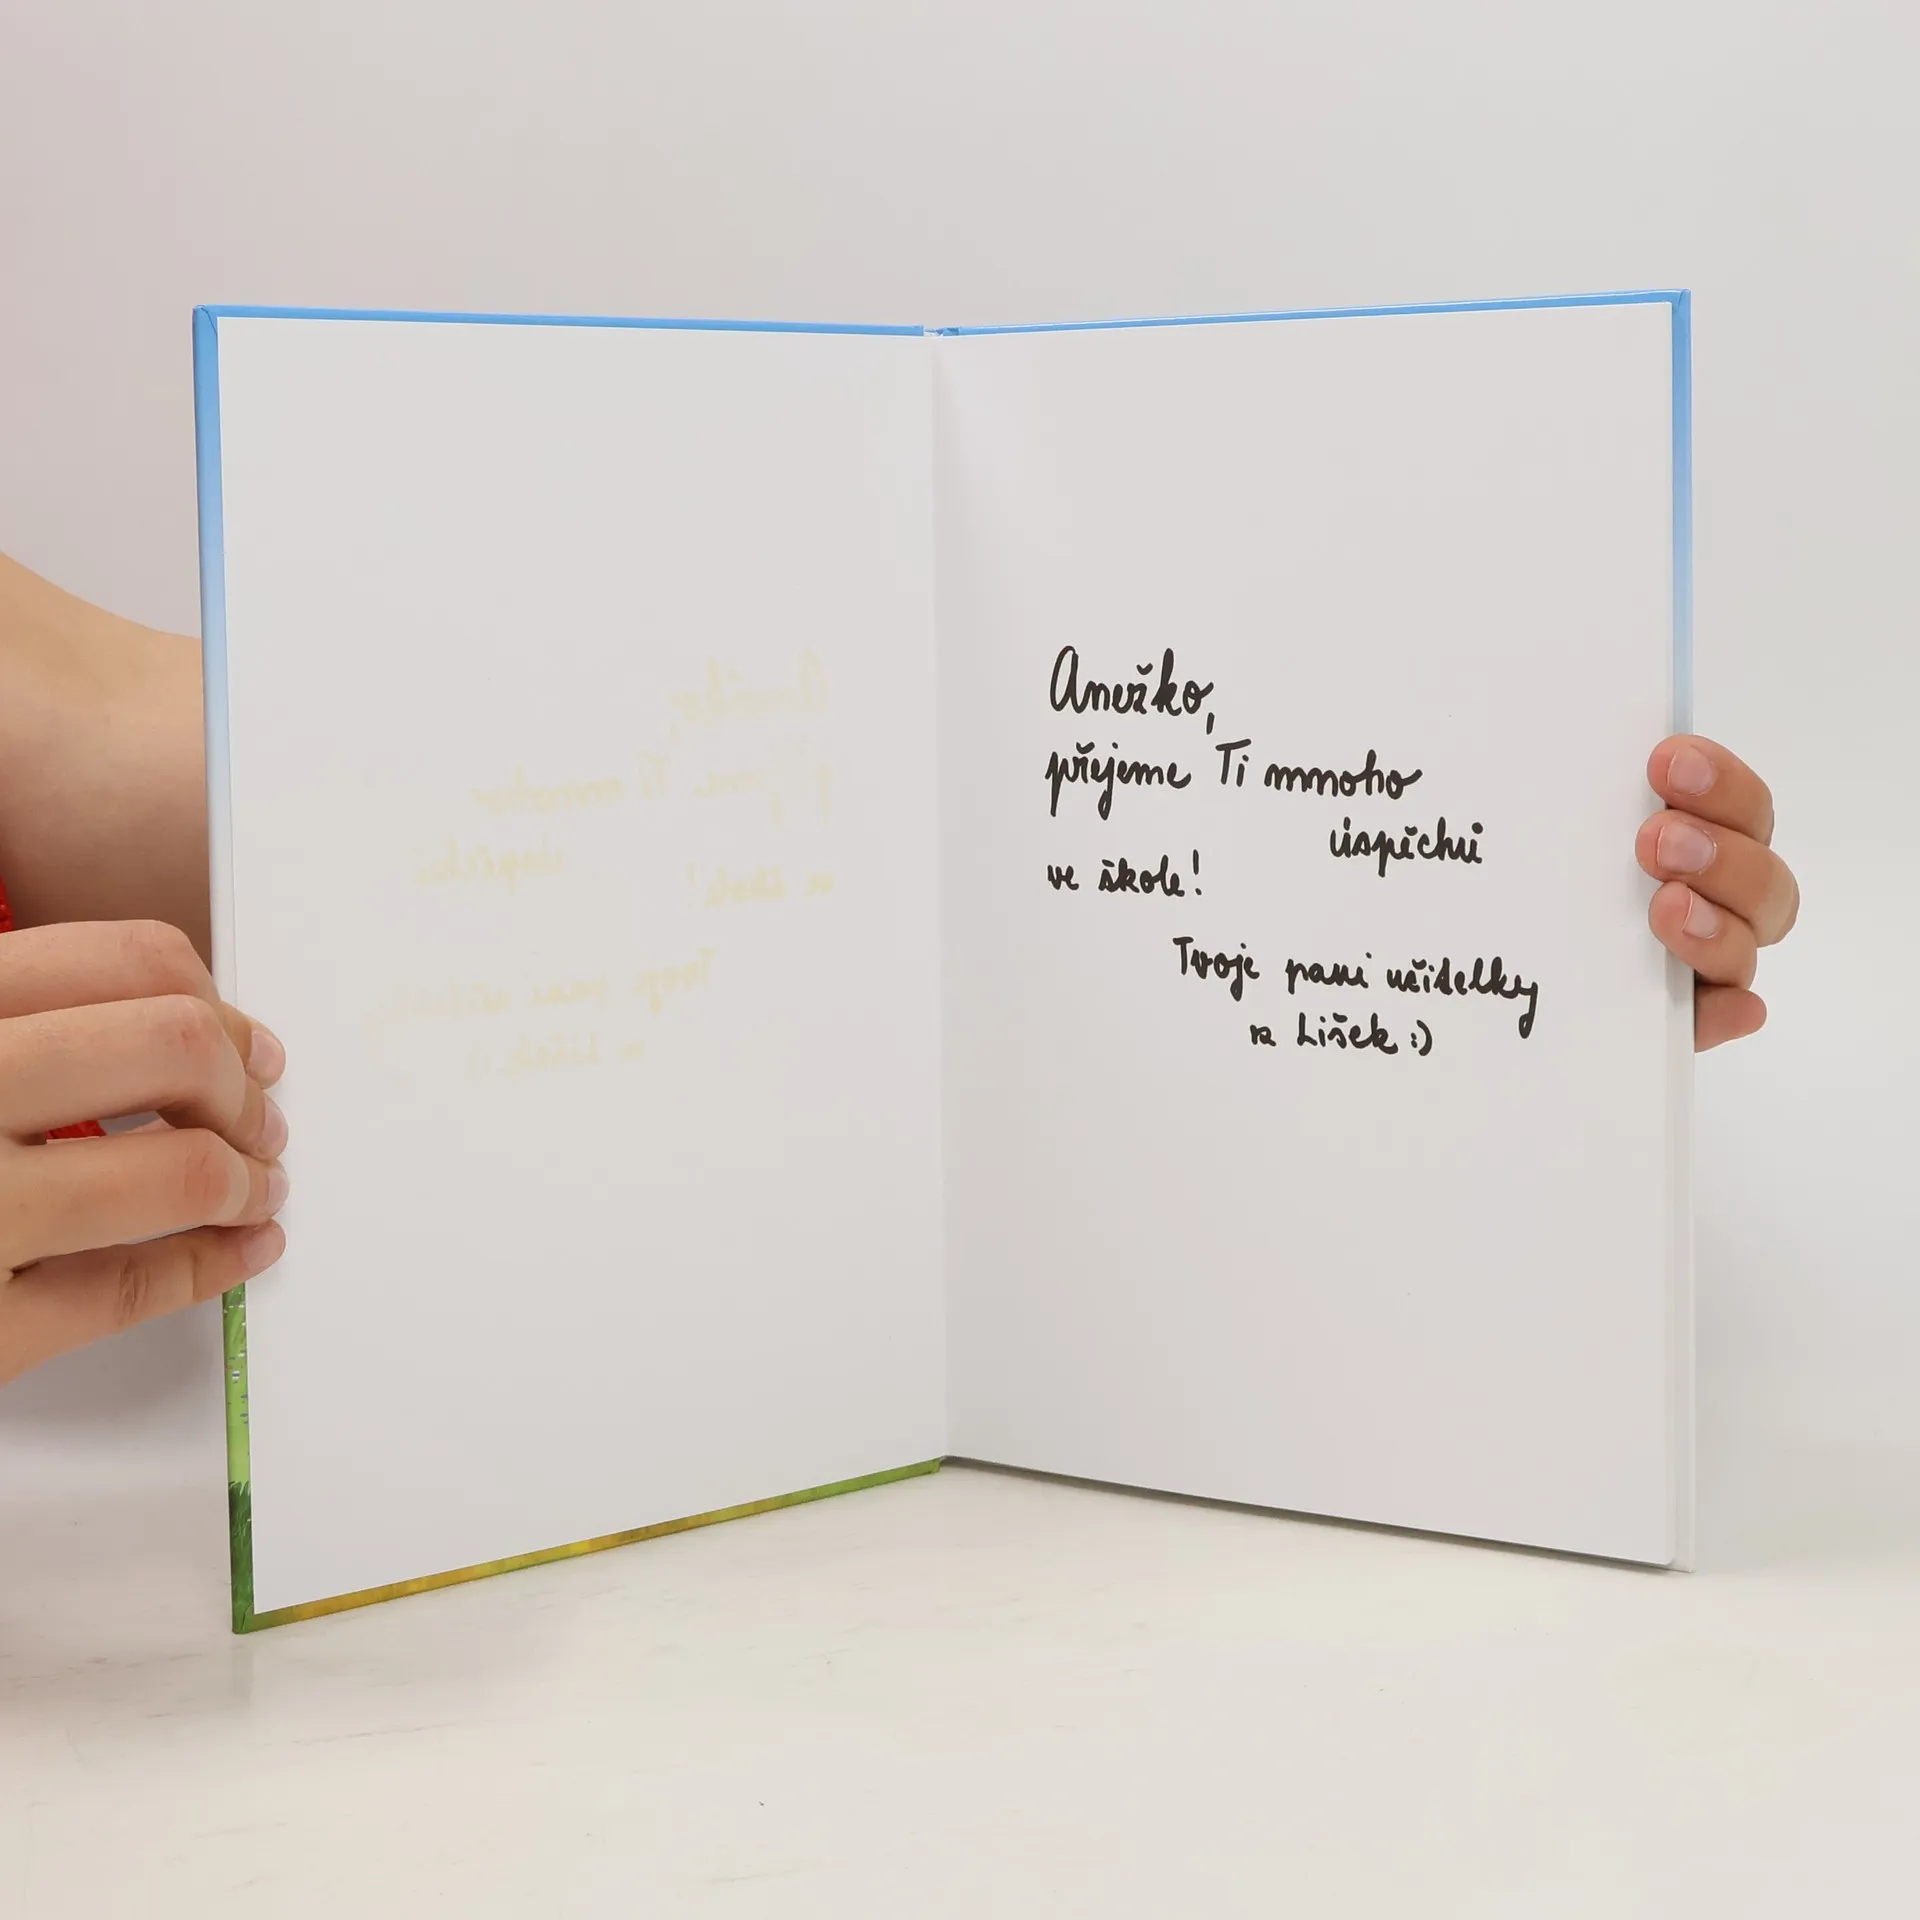 Anežko,
přejeme Ti mnoho
úspěchů
ve škole!
Tvoje paní učitelky
z Lišek :)